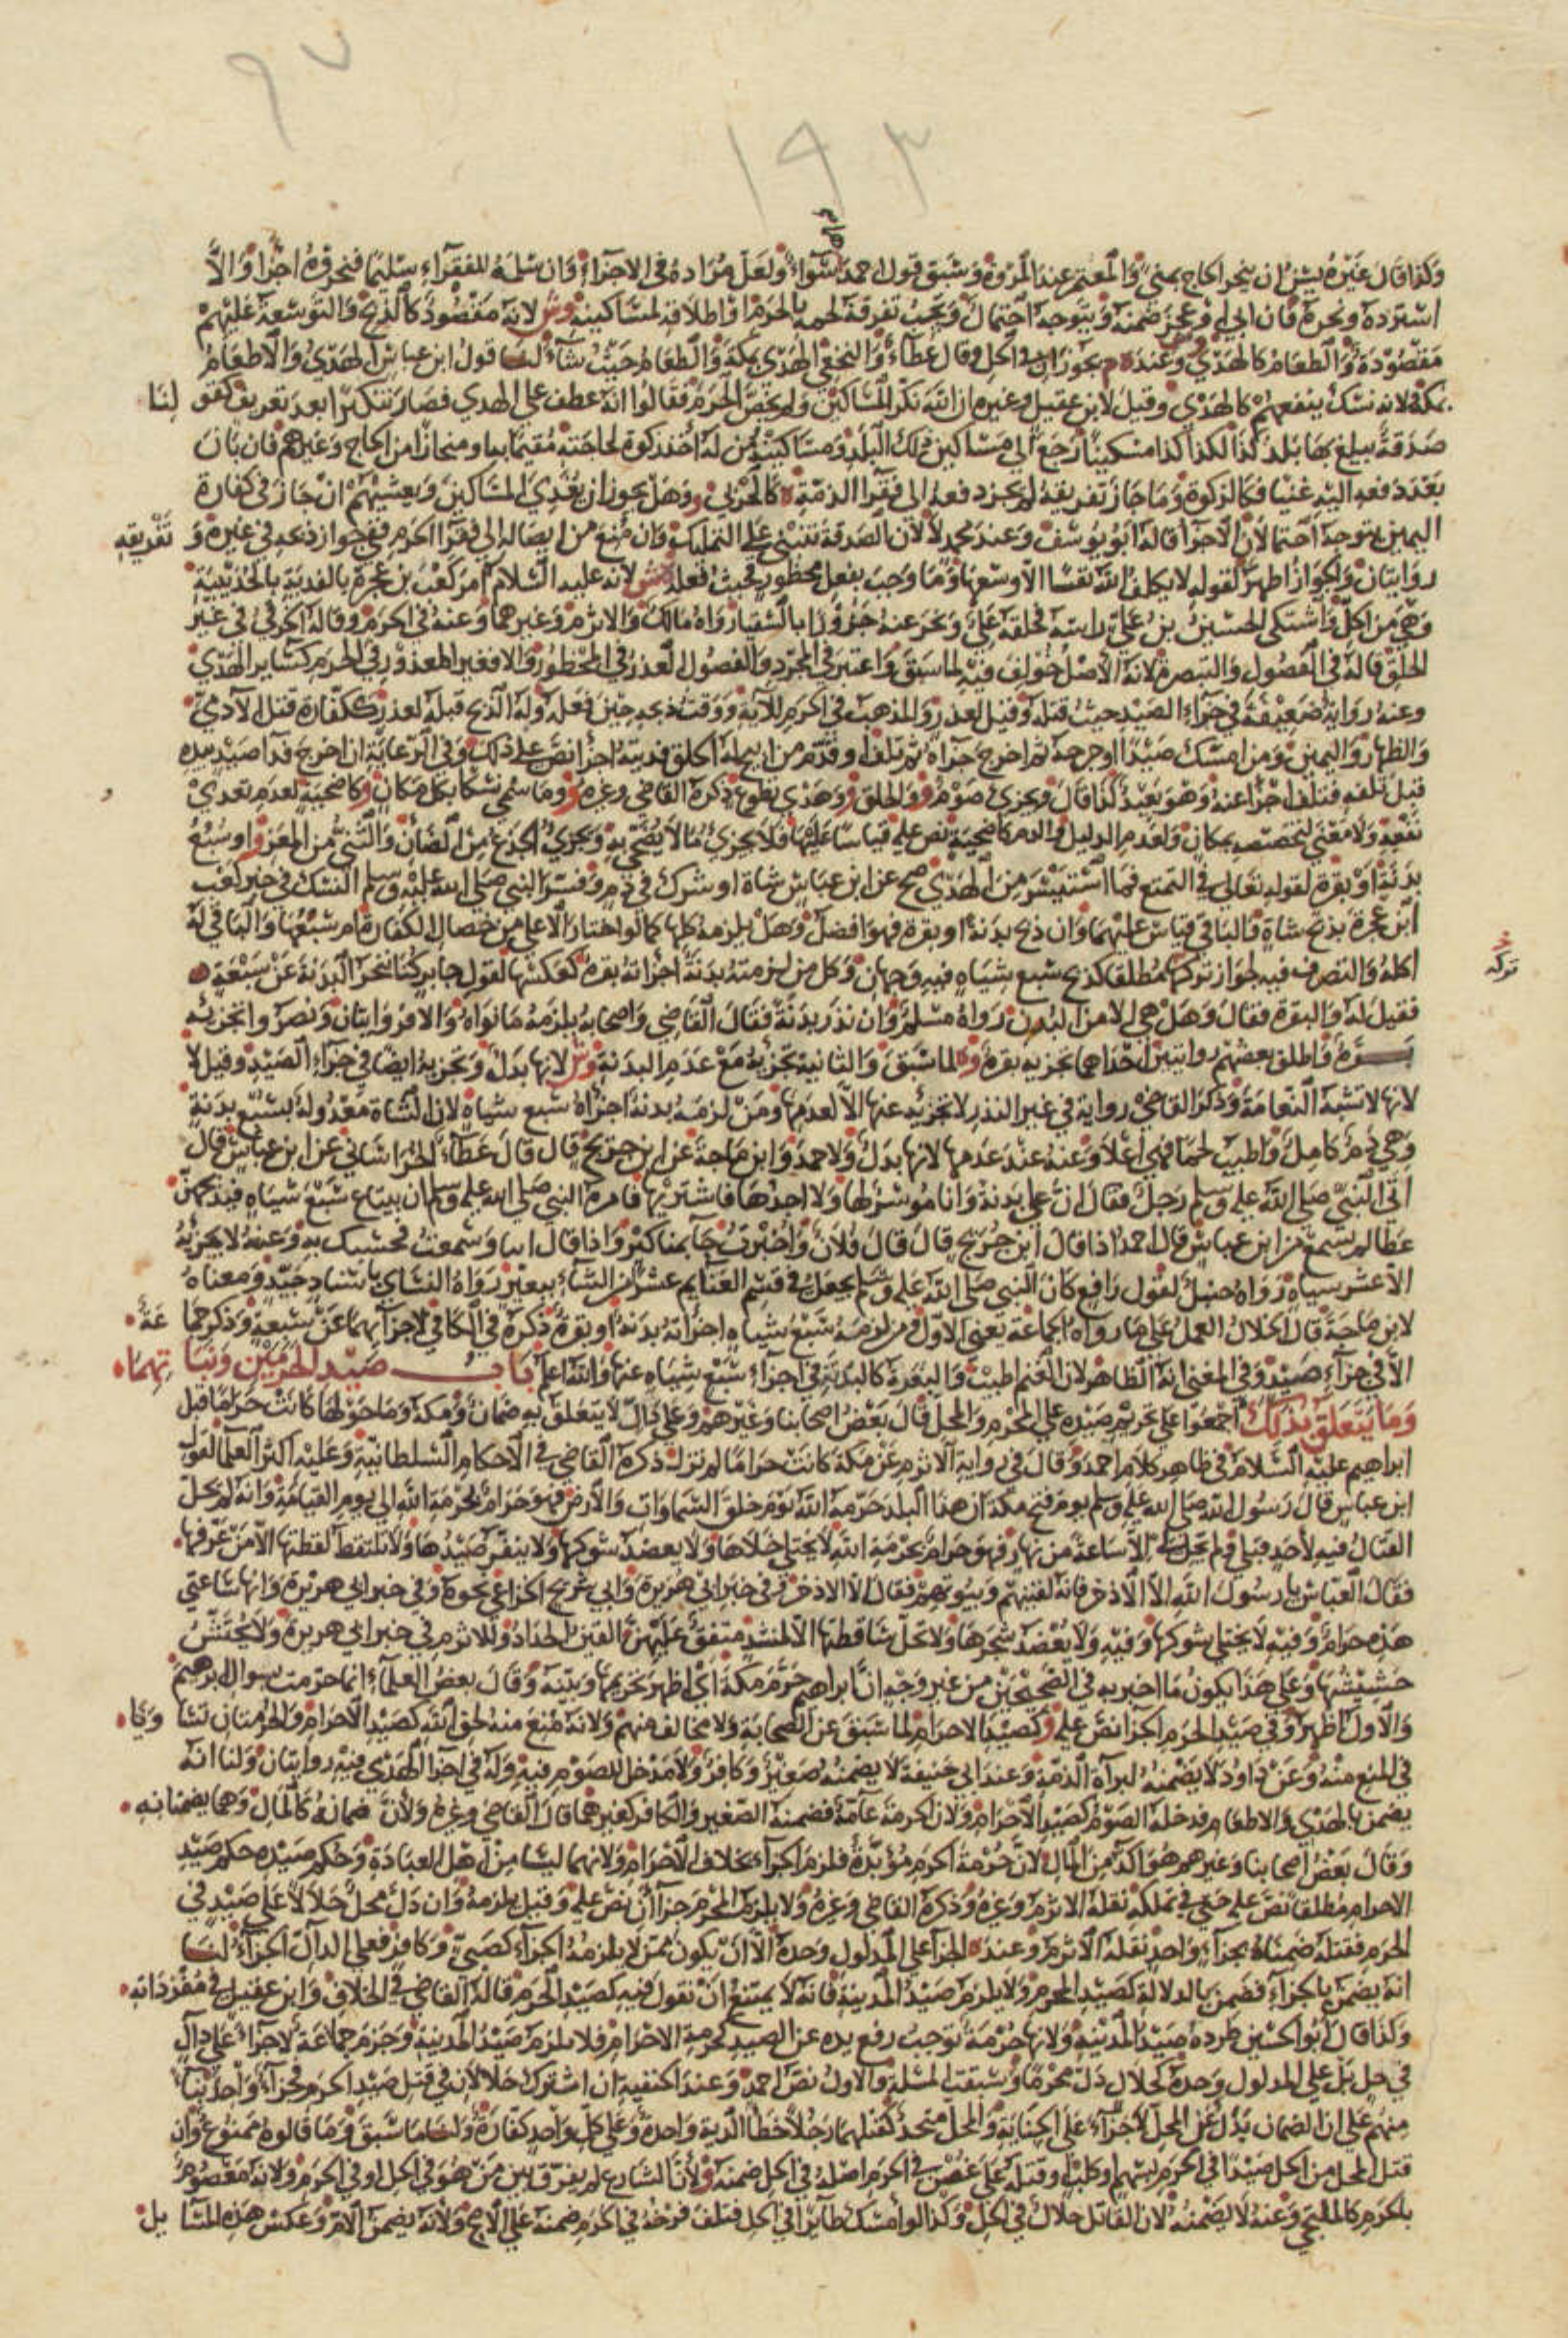 ٩٧
١٩٣
وكذا قال غيره يسن ان ينحر الحاج بمنى والمعتمر عند المروة وسبق قول احمد سواء ولعل مراده في الاجزاء وان سلمه للفقراء سليما فنحروه اجزا والا
استرده ونحره فان ابى او عجز ضمنه ويتوجه احتمال ويجب تفرقة لحمه بالحرم او اطلاقه لمساكينه وش لانه مقصود كالذبح والتوسعة عليهم
مقصودة والطعام كالهدي وعنده م يجوزان في الحل وقال عطاء والنخعي الهدي بمكة والطعام حيث شاء لنا قول ابن عباس الهدي والاطعام
بمكة ولانه نسك ينفعهم كالهدي وقيل لابن عقيل وغيره ان الله نكر المساكين ولم يخص الحرم فقالوا انه عطف على الهدي فصار تنكيرا بعد تعريف كقو لنا
صدقة يبلغ بها بلد كذا لكذا كذا مسكينا رجع الى مساكين ذلك البلد ومساكينه من له اخذ زكوة لحاجته مقيما بها ومجتازا من الحاج وغيرهم فان بان
بعد دفعه اليه غنيا فكالزكوة وما جاز تفريقه لم يجز دفعه الى فقرا الذمة ه كالحربي ووهل يجوز ان يغدي المساكين ويعشيهم ان جاز في كفارة
اليمين يتوجه احتمالان الاجزا قاله ابو يوسف وعند محمد لا لان الصدقة تنبئ على التمليك وان منع من ايصاله الى فقرا الحرم ففي جواز ذبحه في غيره و تفريقه
روايتان والجواز اظهر لقوله لا يكلف الله نفسا الا وسعها وما وجب بفعل محظور فحيث فعله وش لانه عليه السلام امر كعب بن عجرة بالفدية بالحديبية
وهي من الحل واشتكى الحسين بن علي راسه فحلقه علي ونحر عنه جزورا بالسقيا رواه مالك والاثرم وغيرهما وعنه في الحرم وقاله الخرقي في غير
الحلق قاله في الفصول والتبصرة لانه الاصل خولف فيه لما سبق واعتبر في المجرد والفصول العذر في المحظور والا فغير المعذور في الحرم كسائر الهدي
وعنه رواية ضعيفة في جزاء الصيد حيث قتله وقيل لعذر والمذهب في الحرم للآية ووقت ذبحه حين فعله وله الذبح قبله لعذر ككفارة قتل الآدمي
والظهار واليمين ومن امسك صيدا او جرحه ثم اخرج جزاه ثم تلف او قدم من ابيح له الحلق فديته اجزا نص على ذلك وفي الرعاية ان اخرج فدا صيد بيده
قبل تلفه فتلف اجزا عنه وهو بعيد كذا قال ويجزي صوم ووالحلق ووهدي تطوع ذكره القاضي وغيره ووما سمي نسكا بكل مكان وكاضحية لعدم تعدي
نفعه ولا معنى لتخصيصه بمكان ولعدم الدليل والدم كاضحية نص عليه قياسا عليها فلا يجزي ما لا يضحي به ويجزي الجذع من الضان والثني من المعز واوسبع
بدنة او بقرة لقوله تعالى في التمتع فما استيسر من الهدي صح عن ابن عباس شاة او شرك في دم وفسر النبي صلى الله عليه وسلم النسك في خبر كعب
ابن عجرة بذبح شاة والباقي قياس عليهما وان ذبح بدنة او بقرة فهو افضل وهل يلزمه كلها كما لو اختار الاعلى من خصال الكفارة ام سبعها والباقي له
اكله والتصرف فيه لجواز تركها مطلقا كذبح سبع شياه فيه وجهان وكل من لزمته بدنة اجزاته بقرة كعكسها لقول جابر كنا ننحر البدنة عن سبعة
فقيل له والبقرة فقال وهل هي الا من البدن رواه مسلم وان نذر بدنة فقال القاضي واصحابه يلزمه ما نواه والا فروايتان ونصروا تجزئه
بقرة واطلق بعضهم روايتين احداهما تجزيه بقرة وه لما سبق والثانية تجزيه مع عدم البدنة وش لانها بدل وتجزيه ايضا في جزاء الصيد وقيل لا
لانها لا تشبه النعامة وذكر القاضي رواية في غير النذر لا تجزئه عنها الا لعدمها ومن لزمه بدنة اجزاه سبع شياه لان الشاة معدولة بسبع بدنة
وهي دم كامل واطيب لحما فهي اعلا وعنه عند عدمها لانها بدل ولاحمد وابن ماجة عن ابن جريج قال قال عطاء الخراساني عن ابن عباس قال
اتى النبي صلى الله عليه وسلم رجل فقال ان علي بدنة وانا موسر لها ولا اجدها فاشتريها فامره النبي صلى الله عليه وسلم ان يبتاع سبع شياه فيذبحهن
عطا لم يسمع من ابن عباس قال احمد اذا قال ابن جريج قال قال فلان واخبرت جا بمناكير واذا قال انبا وسمعت فحسبك به وعنه لا يجزيه
الا عشر شياه رواه حنبل لقول رافع كان النبي صلى الله عليه وسلم يجعل في قسم الغنايم عشرا من الشاء ببعير رواه النسائي باسناد جيد ومعناه
لابن ماجة قال الخلال العمل على ما رواه الجماعة يعني الاول ومن لزمه سبع شياه اجزاته بدنة او بقرة ذكره في الكافي لاجزائهما عن سبعة وذكر جما عة
الا في جزاء صيد وفي المغني انه الظاهر لان الغنم اطيب والبقرة كالبدنة في اجزاء سبع شياه عنها والله اعلم باب صيد الحرمين ونبا تهما
وما يتعلق بذلك اجمعوا على تحريم صيده على المحرم والمحل قال بعض اصحابنا وغيرهم وعلى دال لا يتعلق به ضمان ومكة وما حولها كانت حراما قبل
ابراهيم عليه السلام في ظاهر كلام احمد وقال في رواية الاثرم عن مكة كانت حراما لم تزل ذكره القاضي في الاحكام السلطانية وعليه اكثر العلما لقول
ابن عباس قال رسول الله صلى الله عليه وسلم يوم فتح مكة ان هذا البلد حرمه الله يوم خلق السماوات والارض فهو حرام بحرمة الله الى يوم القيامة وانه لم يحل
القتال فيه لاحد قبلي ولم يحل لي الا ساعة من نهار فهو حرام بحرمة الله لا يختلى خلاها ولا يعضد شوكها ولا ينفر صيدها ولا تلتقط لقطتها الا من عرفها
فقال العباس يا رسول الله الا الاذخر فانه لقينهم وبيوتهم فقال الا الاذخر وفي خبر ابي هريرة وابي شريح الخزاعي نحوه وفي خبر ابي هريرة وانها ساعتي
هذه حرام وفيه لا يختلى شوكها وفيه ولا يعضد شجرها ولا تحل ساقطتها الا لمنشد متفق عليهن القين الحداد وللاثرم في خبر ابي هريرة ولا يحتش
حشيشها وعلى هذا يكون ما اخبر به في الصحيحين من غير وجه ان ابراهيم حرم مكة اي اظهر تحريمها وبينه وقال بعض العلماء انما حرمت بسوال ابراهيم
والاول اظهر وفي صيد الحرم الجزا نص عليه وكصيد الاحرام لما سبق عن الصحابة ولا مخالف منهم ولانه منع منه لحق الله كصيد الاحرام والحرمتان تسا ويا
في المنع منه وعن داود لا يضمنه لبرآة الذمة وعند ابي حنيفة لا يضمنه صغير وكافر ولا مدخل للصوم فيه وله في اجزا الهدي فيه روايتان ولنا انه
يضمن بالهدي والاطعام فدخله الصوم كصيد الاحرام ولان الحرمة عامة فضمنه الصغير والكافر كغيرهما قال القاضي وغيره ولان ضمانه كالمال وهما يضمنانه
وقال بعض اصحابنا وغيرهم هو آكد من المال لان حرمة الحرم مؤبدة فلزم الجزاء بخلاف الاحرام ولانهما ليسا من اهل العبادة وحكم صيده حكم صيد
الاحرام مطلقا نص عليه حتى في تملكه نقله الاثرم وغيره وذكره القاضي وغيره ولا يلزم المحرم جزاان نص عليه وقيل يلزمه وان دل محل حلالا على صيد في
الحرم فقتله ضمناه بجزاء واحد نقله الاثرم وعنده الجزا على المدلول وحده الا ان يكون ممن لا يلزمه الجزاء كصبي وكافر فعلى الدال الجزاء لنا
انه يضمن بالجزاء فضمن بالدلالة كصيد المحرم ولا يلزم صيد المدينة فانه لا يمتنع ان نقول فيه كصيد الحرم قاله القاضي في الخلاف وابن عقيل في مفرداته
وكذا قال ابو الحسين طرده صيد المدينة ولانها حرمة توجب رفع يده عن الصيد كحرمة الاحرام فلا يلزم صيد المدينة وجزم جماعة لا جزاء على دال
في حل بل على المدلول وحده كحلال دل محرما وسبقت المسئلة والاول نص احمد وعند الحنفية ان اشترك حلالان في قتل صيد الحرم فجزاء واحد بناء
منهم على ان الضمان بدل عن المحل لا جزاء على الجناية والمحل متحد كقتلهما رجلا خطأ الدية واحدة وعلى كل واحد كفارة ولنا ما سبق وما قالوه ممنوع وان
قتل المحل من الحل صيدا في الحرم بسهم او كلب او قتله على غصن في الحرم اصله في الحل ضمنه ولان الشارع لم يفرق بين من هو في الحل او في الحرم ولانه معصوم
بالحرم كالملتجي وعنه لا يضمنه لان القاتل حلال في الحل وكذا لو امسك طائرا في الحل فتلف فرخه في الحرم ضمنه على الاصح ولانه يضمن الام وعكس هذه المسا يل
نركه